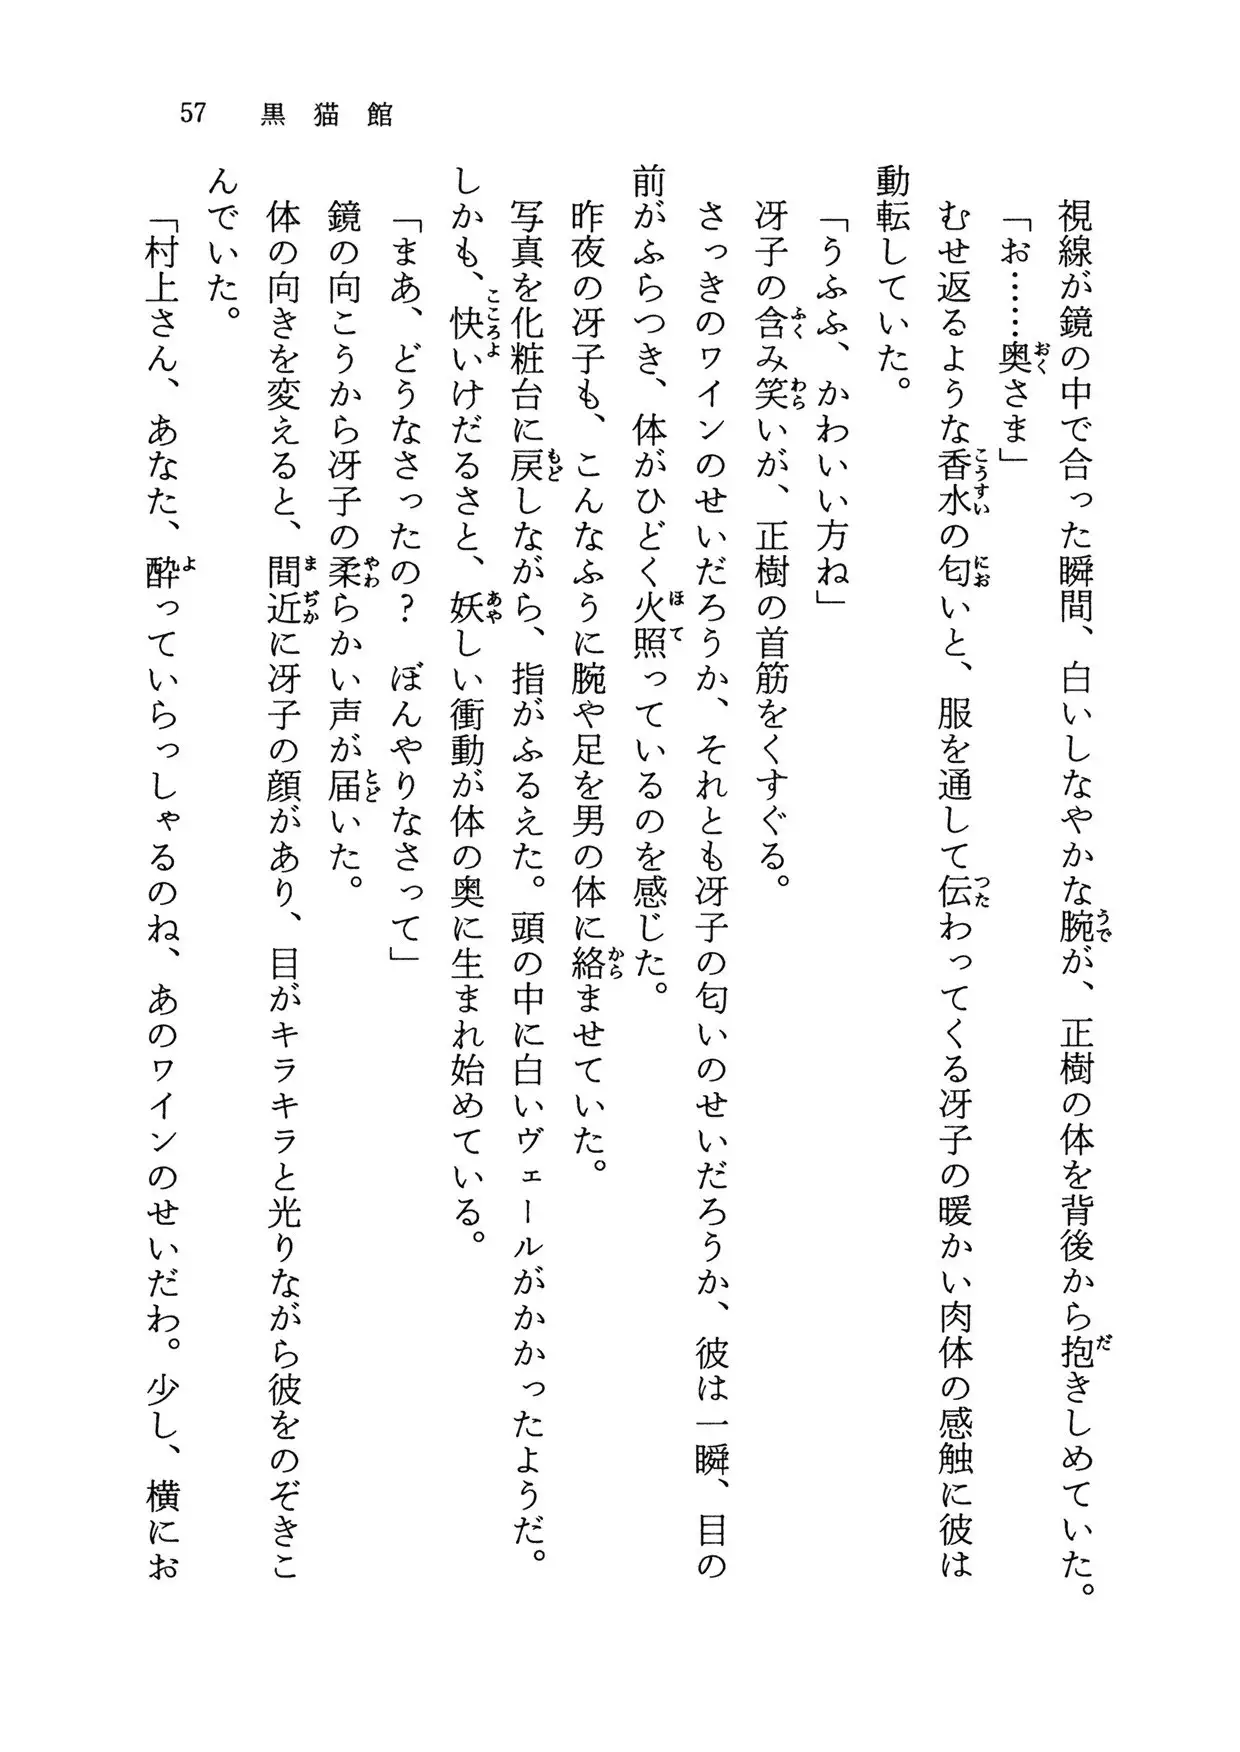 57 黒猫館
視線が鏡の中で合った瞬間、白いしなやかな腕が、正樹の体を背後から抱きしめていた。
「お……奥さま」
むせ返るような香水の匂いと、服を通して伝わってくる冴子の暖かい肉体の感触に彼は
動転していた。
「うふふ、かわいい方ね」
冴子の含み笑いが、正樹の首筋をくすぐる。
さっきのワインのせいだろうか、それとも冴子の匂いのせいだろうか、彼は一瞬、目の
前がふらつき、体がひどく火照っているのを感じた。
昨夜の冴子も、こんなふうに腕や足を男の体に絡ませていた。
写真を化粧台に戻しながら、指がふるえた。頭の中に白いヴェールがかかったようだ。
しかも、快いけだるさと、妖しい衝動が体の奥に生まれ始めている。
「まあ、どうなさったの？　ぼんやりなさって」
鏡の向こうから冴子の柔らかい声が届いた。
体の向きを変えると、間近に冴子の顔があり、目がキラキラと光りながら彼をのぞきこ
んでいた。
「村上さん、あなた、酔っていらっしゃるのね、あのワインのせいだわ。少し、横にお